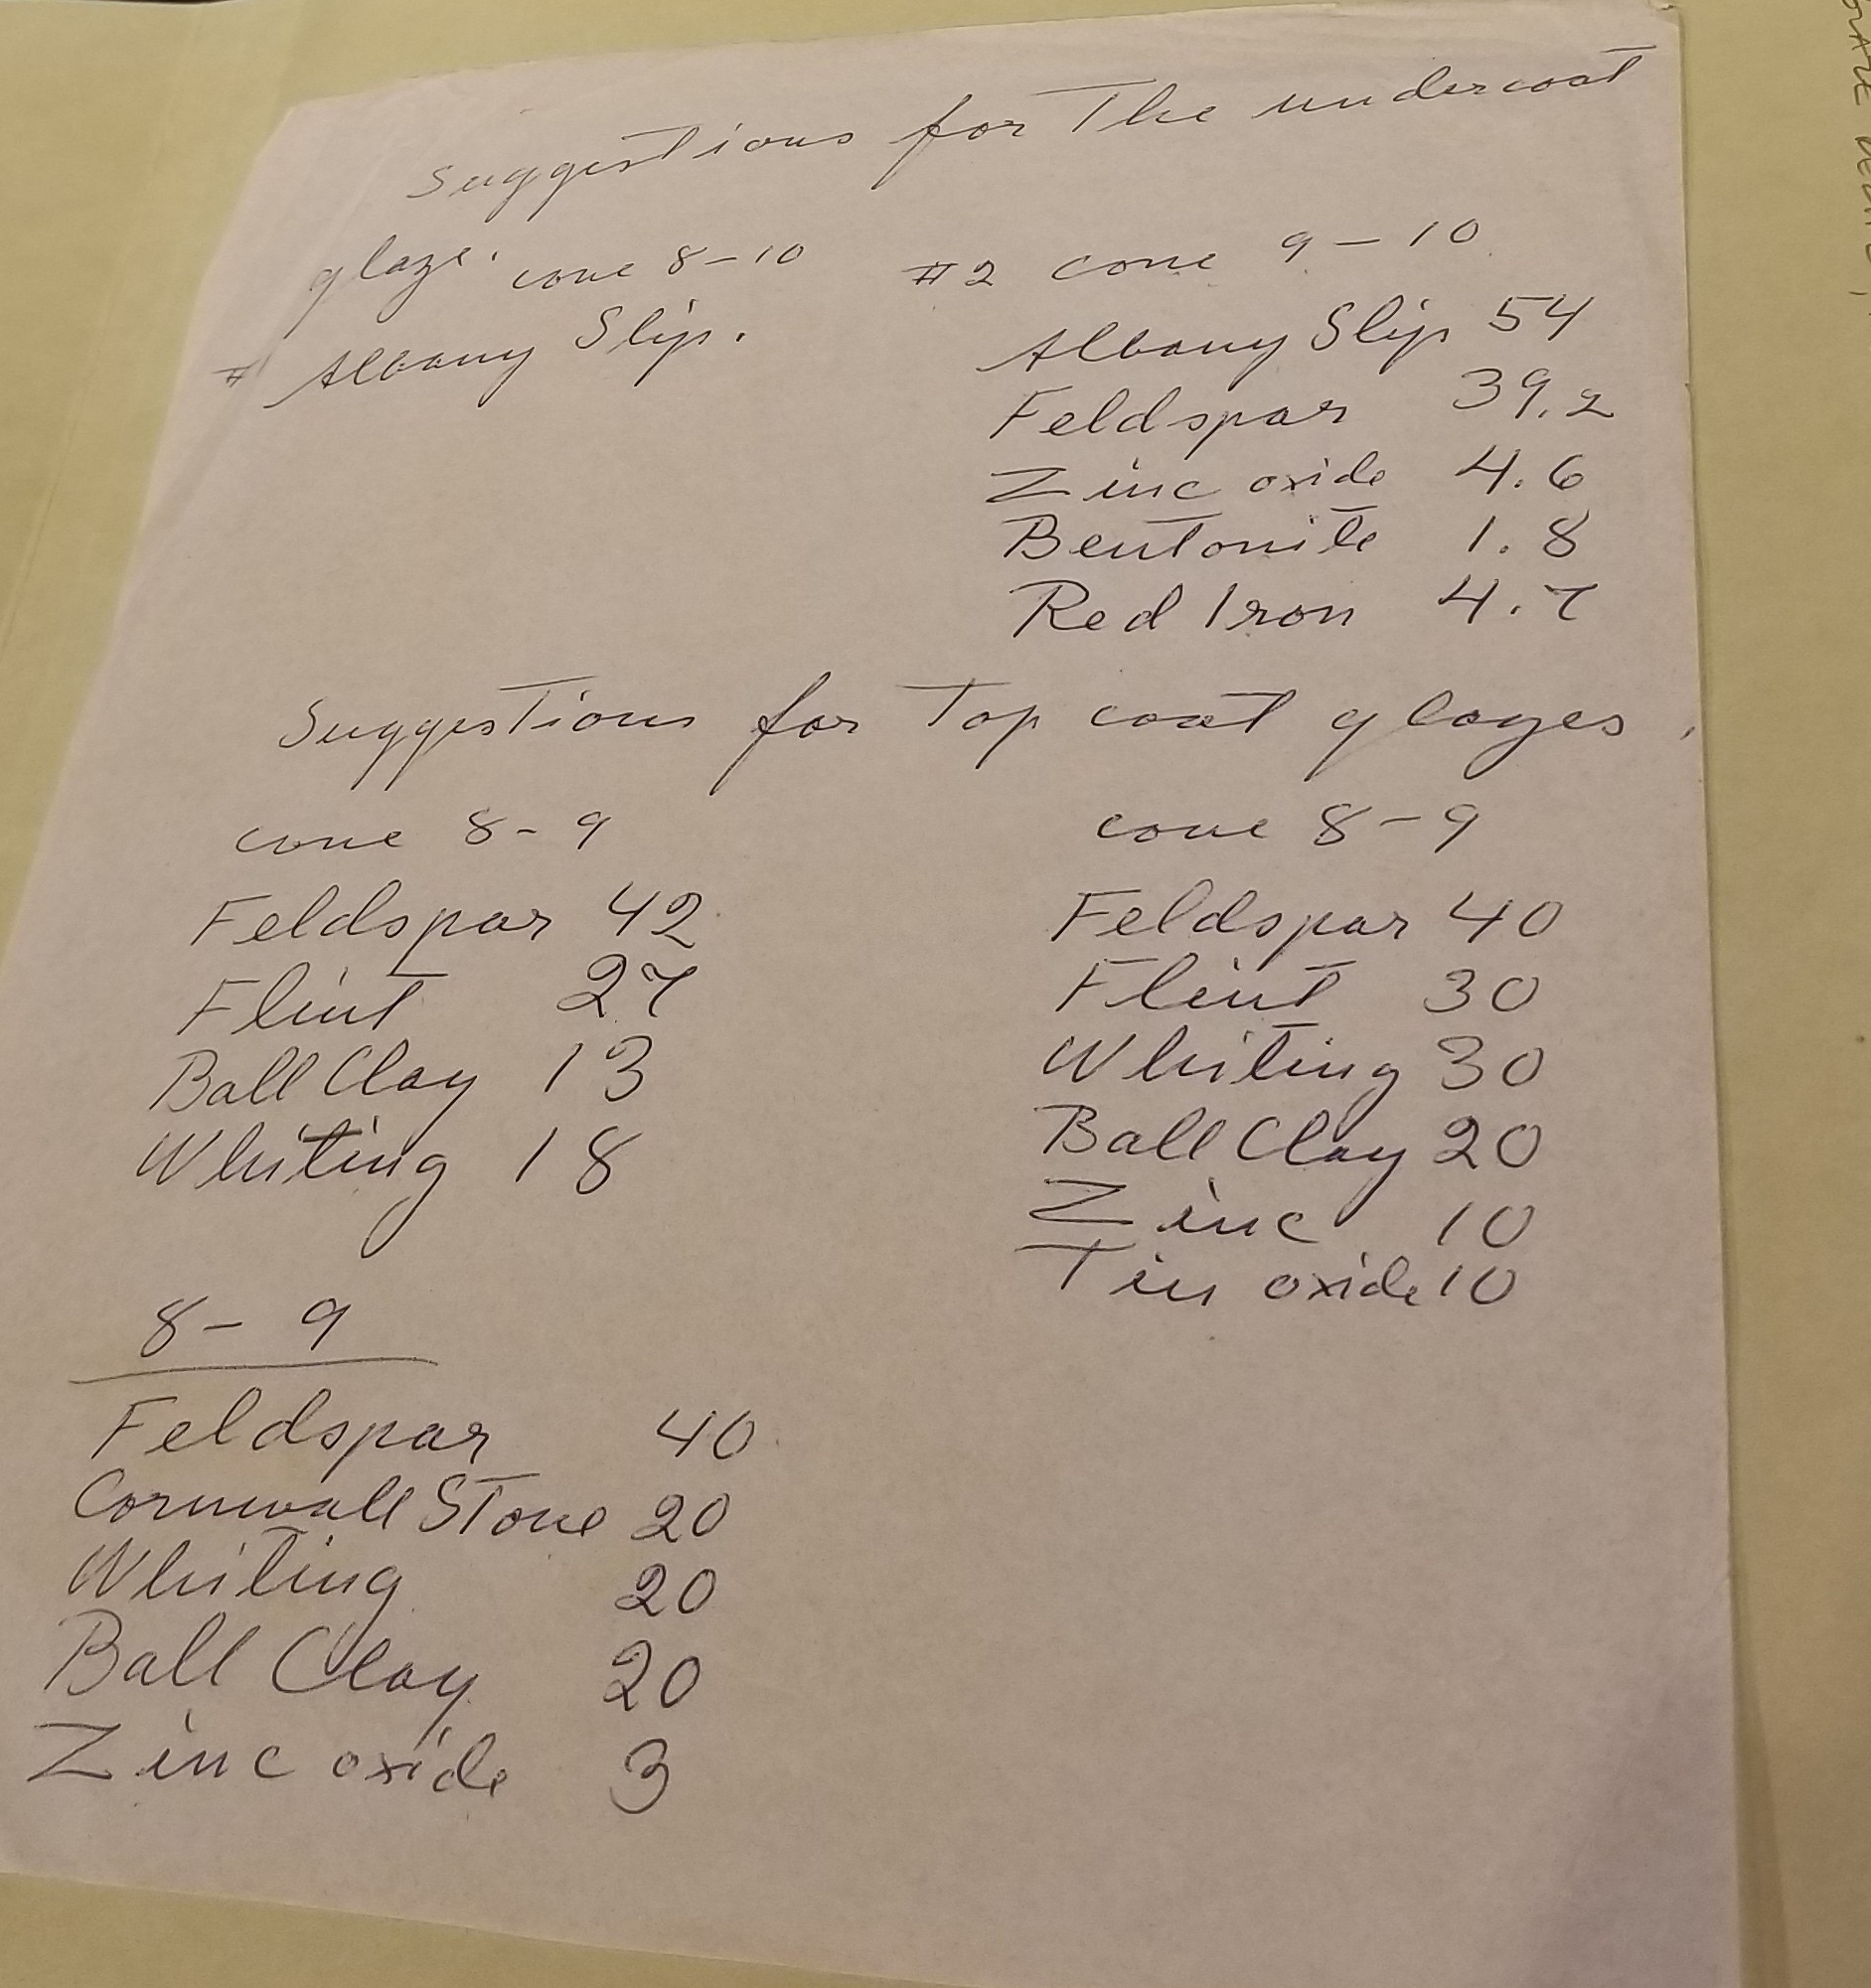 Suggestions for The undercoat
glaze. cone 8-10
# Albany Slip.
#2 cone 9-10
Albany Slip 54
Feldspar 39.2
Zinc oxide 4.6
Bentonite 1.8
Red Iron 4.7
Suggestions for Top coat glazes.
cone 8-9
Feldspar 42
Flint 27
Ball Clay 13
Whiting 18
cone 8-9
Feldspar 40
Flint 30
Whiting 30
Ball Clay 20
Zinc 10
Tin oxide 10
8-9
Feldspar 40
Cornwall Stone 20
Whiting 20
Ball Clay 20
Zinc oxide 3